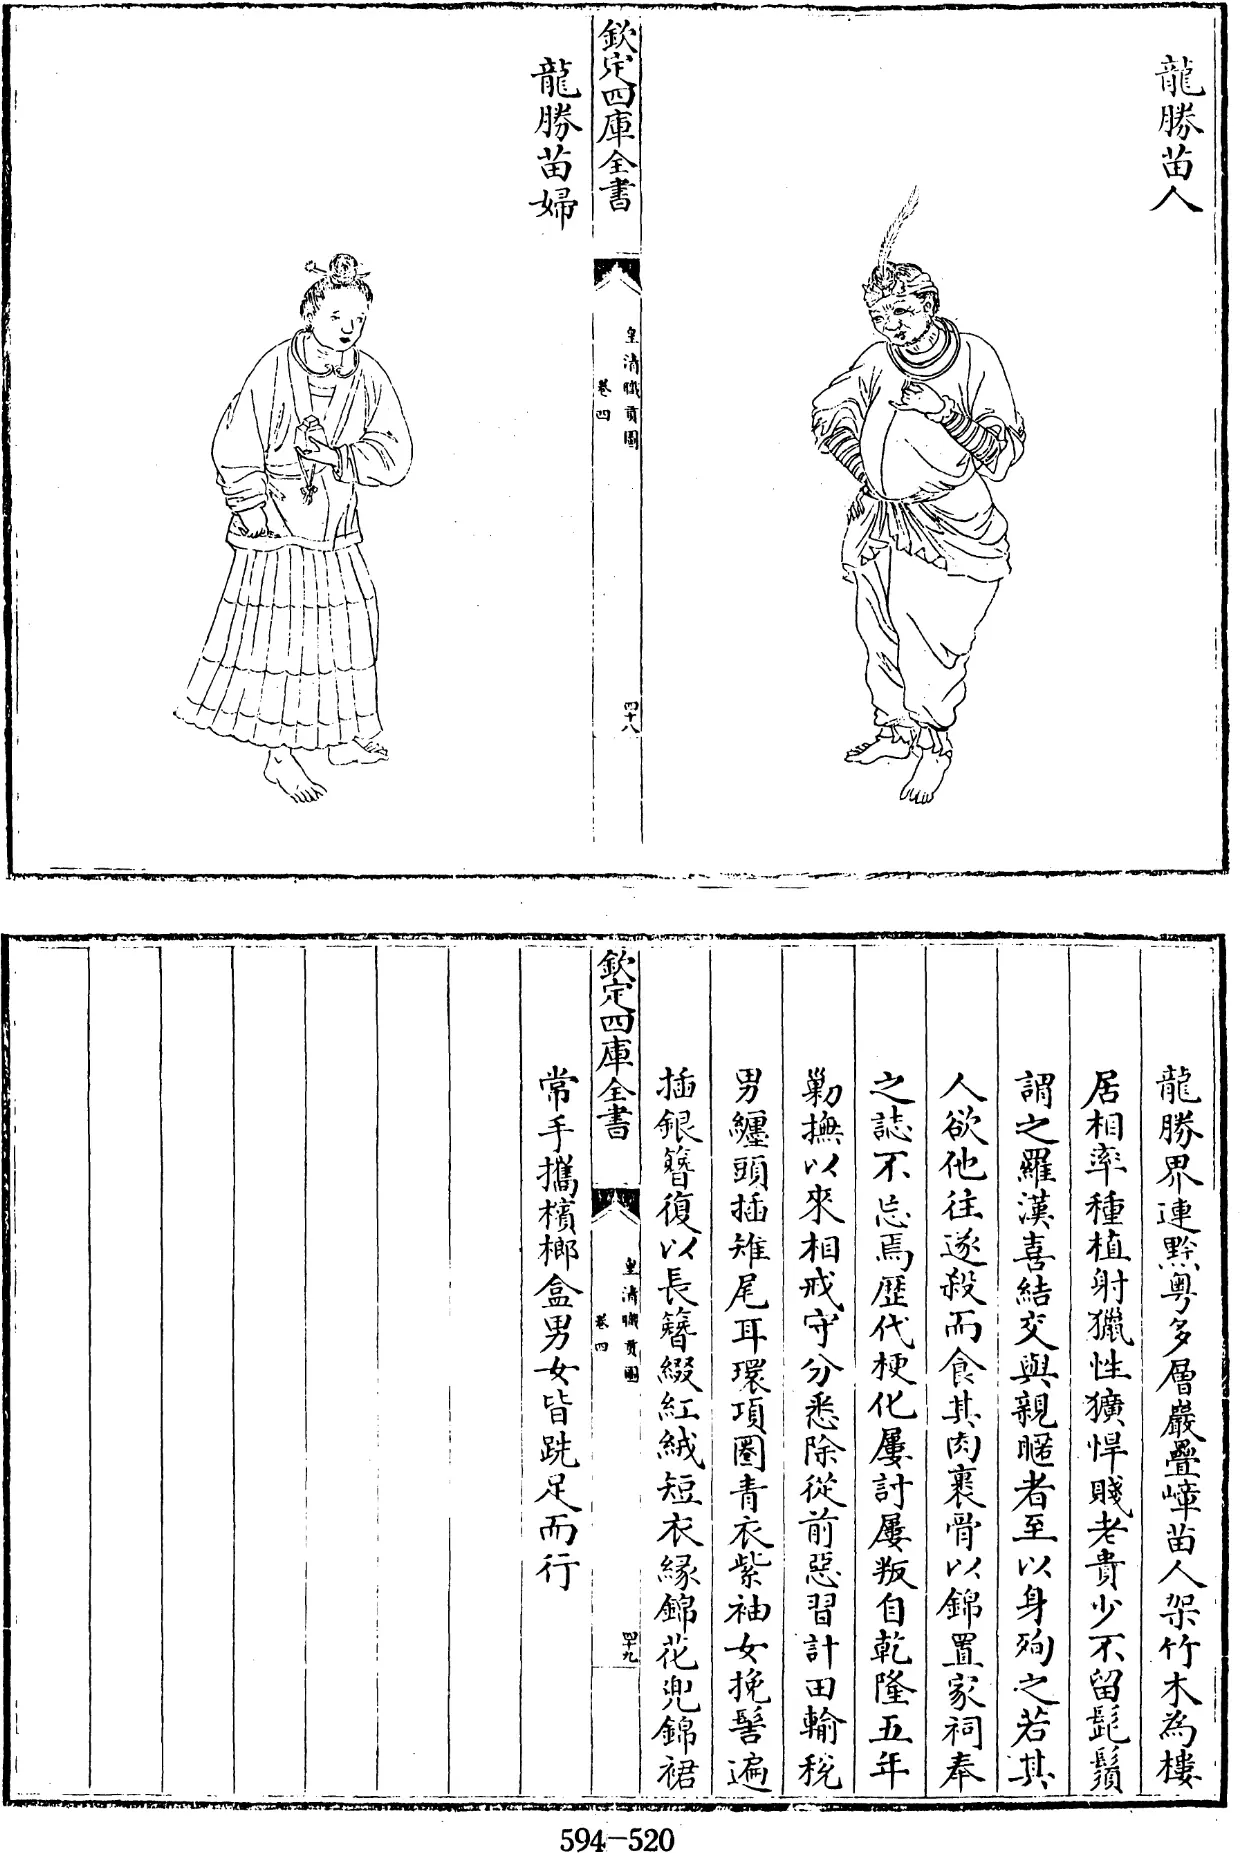 龍勝苗人
欽定四庫全書
皇清職貢圖
卷四
四十八
龍勝苗婦
龍勝界連黔粤多層巖疊嶂苗人架竹木為樓
居相率種植射獵性獷悍賤老貴少不留髭鬚
謂之羅漢喜結交與親暱者至以身殉之若其
人欲他往遂殺而食其肉裹骨以錦置家祠奉
之誌不忘焉歴代梗化屢討屢叛自乾隆五年
勦撫以來相戒守分悉除從前惡習計田輸稅
男纏頭插雉尾耳環項圈青衣紫袖女挽髻遍
插銀簪復以長簪綴紅絨短衣緣錦花兜錦裙
欽定四庫全書
皇清職貢圖
卷四
四十九
常手攜檳榔盒男女皆跣足而行
594-520